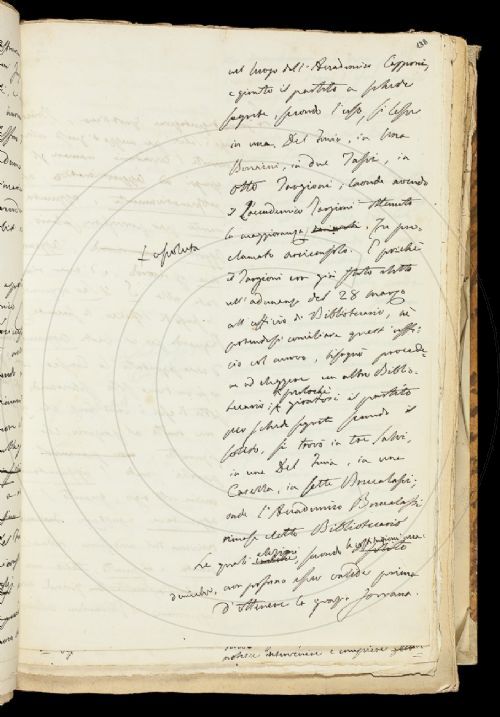 138
nel luogo dell'Accademico Capponi,
e girato il partito a schede
segrete, secondo l'uso, si lesse
in una, Del Furia, in una
Bencini, in due Tassi, in
otto Targioni; laonde avendo
l'accademico Targioni ottenuto
la maggioranza, fu pro-
clamato arciconsolo. E poichè
il Targioni era già stato eletto
nell'adunanza del 28 marzo
all'uffizio di Bibliotecario, nè
potendosi conciliare quest'uffi-
cio col nuovo, bisognò procede-
re ad eleggere un altro Biblio-
tecario; perlochè giratosi il partito
per schede segrete secondo il
solito, si trovò in tre Salvi,
in una Del Furia, in una
Caselli, in sette Boucalassi;
onde l'Accademico Boucalassi
rimase eletto Bibliotecario
le quali elezioni, secondo le costituzioni acca-
demiche, non possono esser valide prima
d'ottenere la grazia Sovrana.